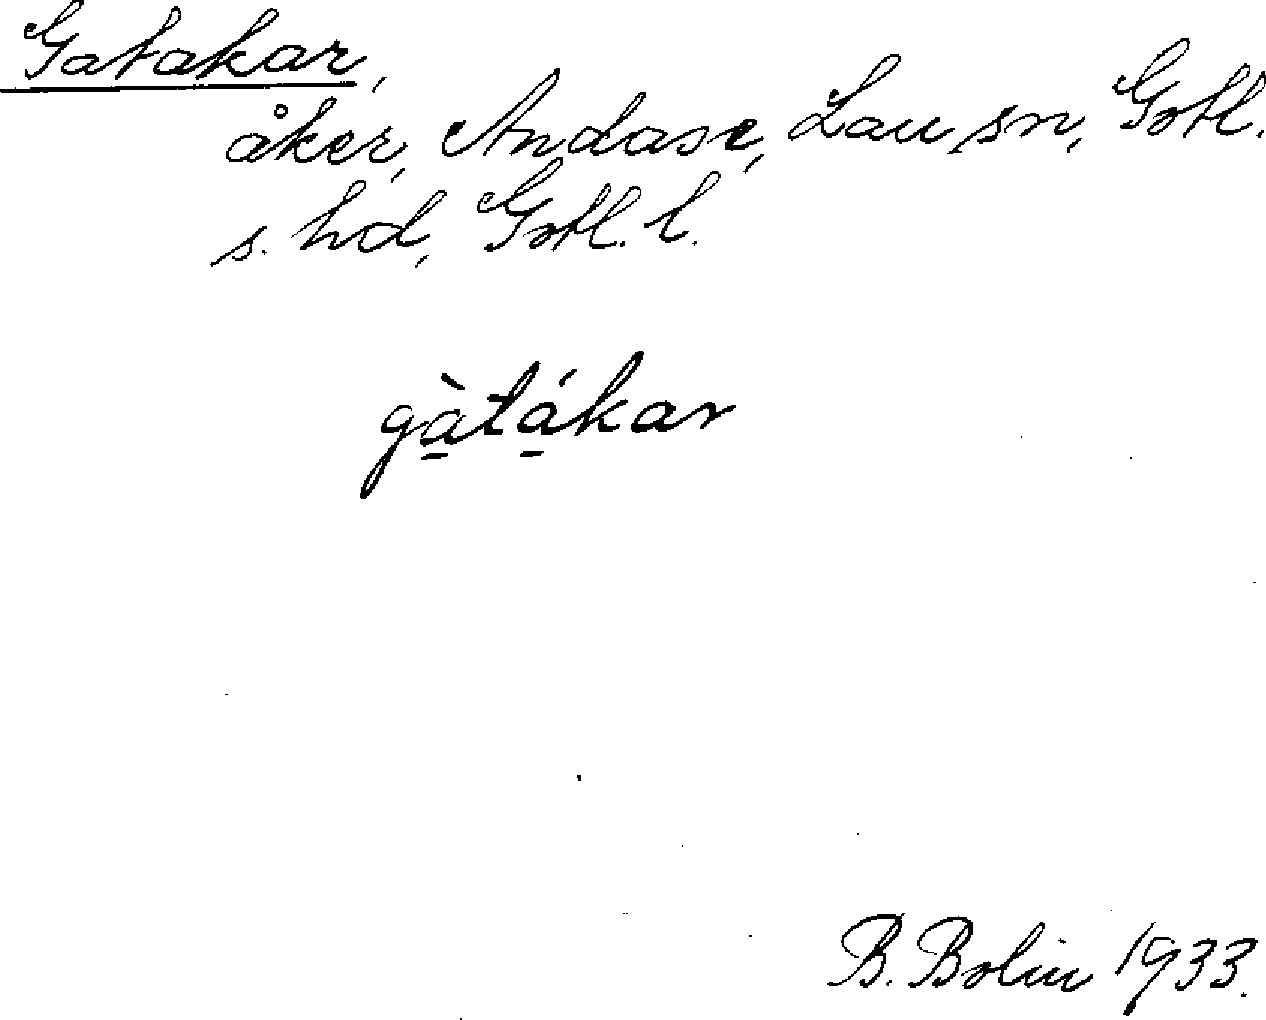 Gatakar,
åker, Andase, Lau sn, Gotl.
s. hd, Gotl. l.
gà̱tá̱kar
B. Bolin 1933.